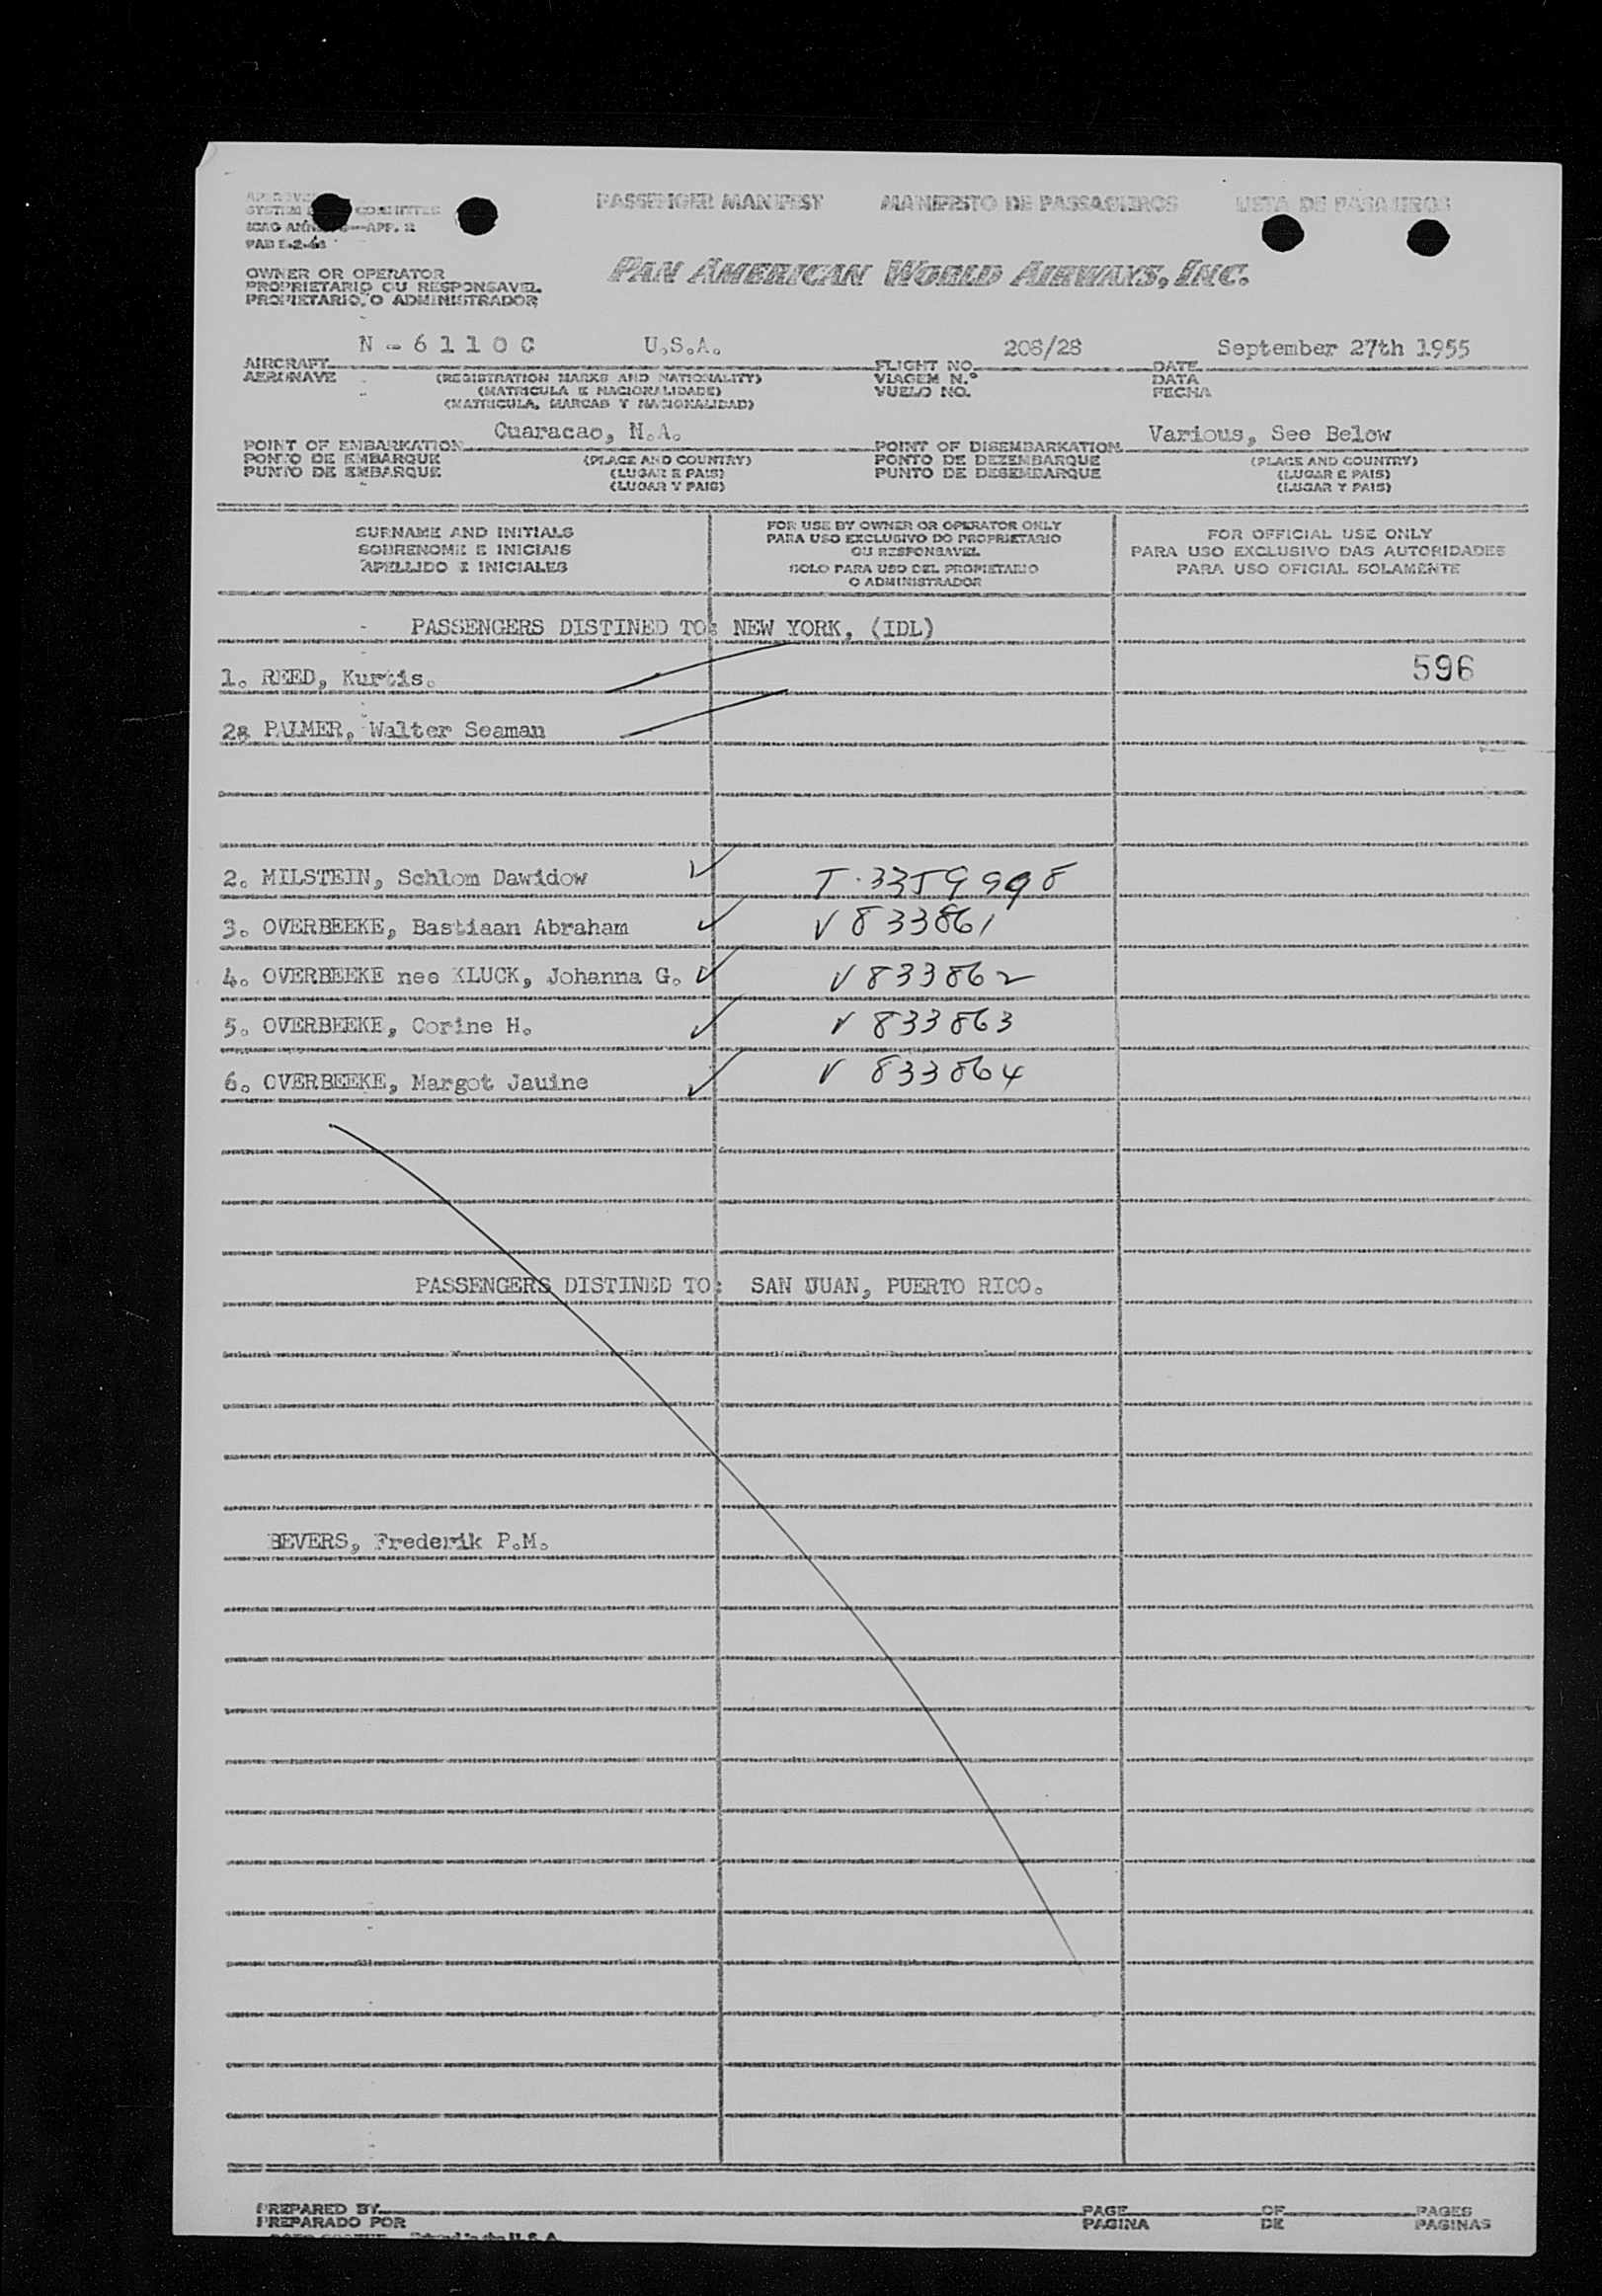 PASSENGER MANIFEST MANIFESTO DE PASSAGEIROS LISTA DE PASAJEROS
SYSTEM COMMITTEE
APP. 2
OWNER OR OPERATOR
PROPRIETARIO OU RESPONSAVEL
PROPIETARIO, O ADMINISTRADOR
PAN AMERICAN WORLD AIRWAYS, INC.
N - 6 1 1 0 C U.S.A. 206/28 September 27th 1955
AIRCRAFT FLIGHT NO. DATE
AERONAVE (REGISTRATION MARKS AND NATIONALITY) VIAGEM N.º DATA
(MATRICULA E NACIONALIDADE) VUELO NO. FECHA
(MATRICULA, MARCAS Y NACIONALIDAD)
Cuaracao, N.A. Various, See Below
POINT OF EMBARKATION POINT OF DISEMBARKATION
PONTO DE EMBARQUE (PLACE AND COUNTRY) PONTO DE DEZEMBARQUE (PLACE AND COUNTRY)
PUNTO DE EMBARQUE (LUGAR E PAIS) PUNTO DE DESEMBARQUE (LUGAR E PAIS)
(LUGAR Y PAIS) (LUGAR Y PAIS)
SURNAME AND INITIALS
SOBRENOME E INICIAIS
APELLIDO E INICIALES
FOR USE BY OWNER OR OPERATOR ONLY
PARA USO EXCLUSIVO DO PROPRIETARIO
OU RESPONSAVEL
SOLO PARA USO DEL PROPIETARIO
O ADMINISTRADOR
FOR OFFICIAL USE ONLY
PARA USO EXCLUSIVO DAS AUTORIDADES
PARA USO OFICIAL SOLAMENTE
PASSENGERS DISTINED TO: NEW YORK, (IDL)
1. REED, Kurtis. 596
2. PALMER, Walter Seaman
2. MILSTEIN, Schlom Dawidow T.3359998
3. OVERBEEKE, Bastiaan Abraham V 833861
4. OVERBEEKE nee KLUCK, Johanna G. V 833862
5. OVERBEEKE, Corine H. V 833863
6. OVERBEEKE, Margot Jauine V 833864
PASSENGERS DISTINED TO: SAN JUAN, PUERTO RICO.
BEVERS, Frederik P.M.
PREPARED BY PAGE OF PAGES
PREPARADO POR PAGINA DE PAGINAS